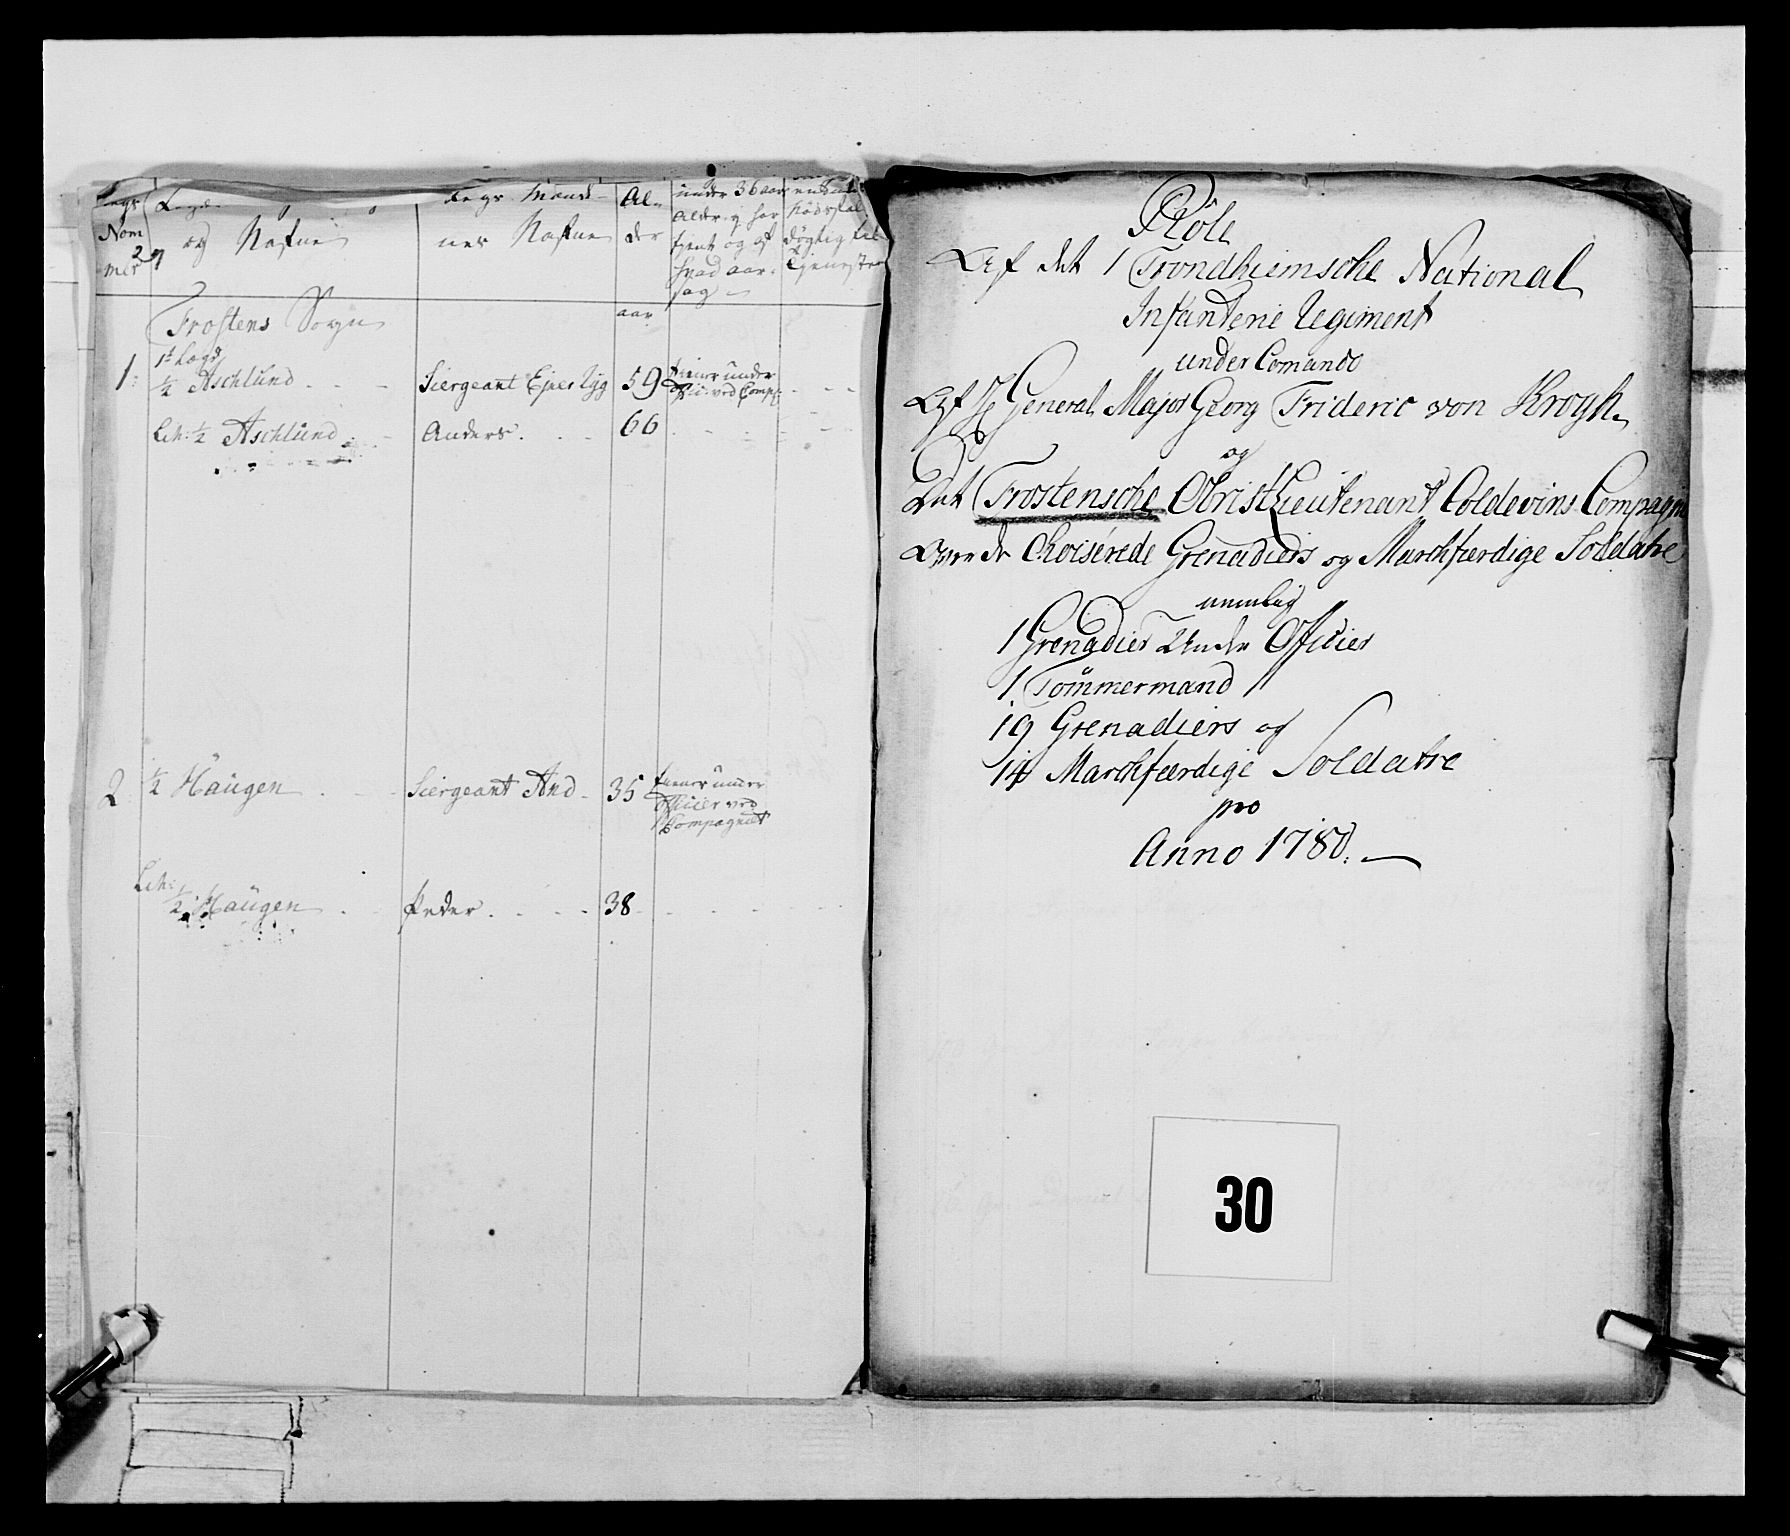 Legs
Nom
mer
Lægd
og Nafne
Legs Mænd
nes Nafne
Al-
der
under 36 aar
Alder ej har
tient og af
hvad aar-
sag
Nødsfal
døgtig til
Tjeneste
aar
Frostens Sogn
1t Lægd
1: ½ Aschlund Siergeant Ejner Lyg 59 tiener under
Offic: ved Comp:
Lih: ½ Aschlund Anders 66
2 ½ Haugen Siergeant And 35 tiener under
Officier ved
Compagniet
Lih:
½ Haugen Peder 38
Rolle
Af det 1 Trondhiemsche National
Infanterie Regiment
under Comando
Af H General Major Georg Frideric von Krogh
og
Det Frostensche Obristlieutenant Coldevins Compagnie
Over de Choiserede Grenadiers og Marchfærdige Soldatre
nemlig
1 Grenadier Under Officier
1 Tömmermand
19 Grenadiers og
14 Marchfærdige Soldatre
pro
Anno 1780.
30